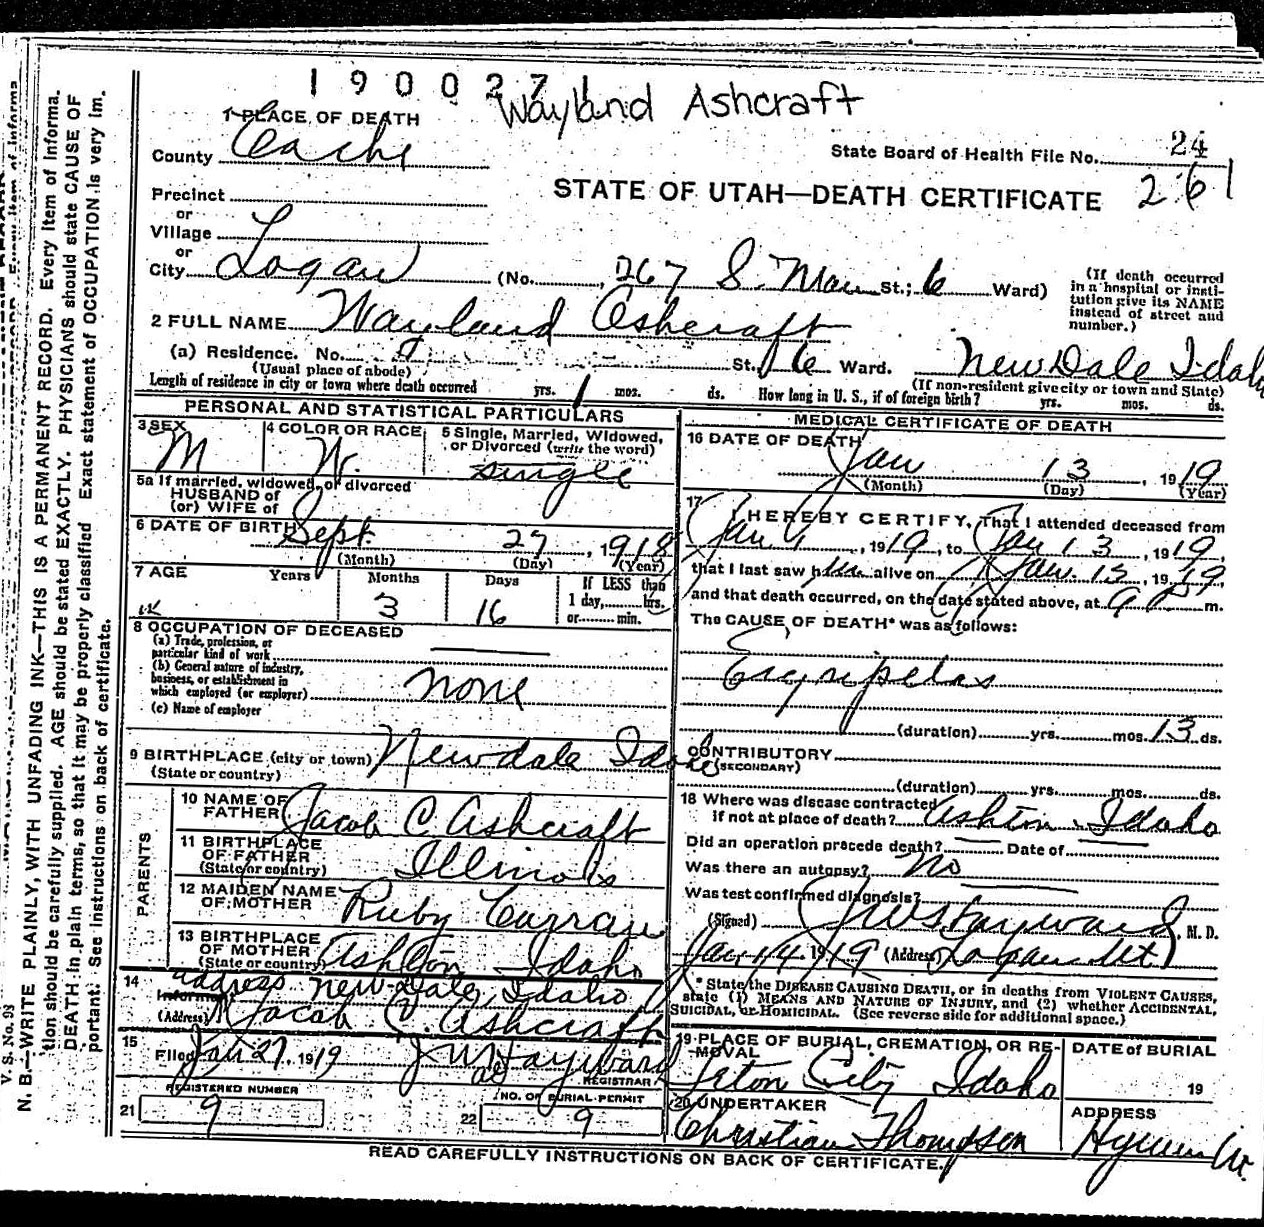 1900271
Wayland Ashcraft
1 PLACE OF DEATH
County Cache
State Board of Health File No. 24
261
STATE OF UTAH—DEATH CERTIFICATE
Precinct
or
Village
or
City Logan (No. 267 S. Main St.; 6 Ward)
(If death occurred in a hospital or insti-
tution give its NAME
instead of street and
number.)
2 FULL NAME Wayland Ashcraft
(a) Residence. No. St. 6 Ward. New Dale Idaho
(Usual place of abode) (If non-resident give city or town and State)
Length of residence in city or town where death occurred yrs. 1 mos. ds. How long in U. S., if of foreign birth? yrs. mos. ds.
PERSONAL AND STATISTICAL PARTICULARS
3 SEX M
4 COLOR OR RACE W.
5 Single, Married, Widowed,
or Divorced (write the word)
single
5a If married, widowed, or divorced
HUSBAND of
(or) WIFE of
6 DATE OF BIRTH Sept. 27, 1918
(Month) (Day) (Year)
7 AGE Years Months Days If LESS than
1 day, hrs.
or min.
3 16
8 OCCUPATION OF DECEASED
(a) Trade, profession, or
particular kind of work
(b) General nature of industry,
business, or establishment in
which employed (or employer) none
(c) Name of employer
9 BIRTHPLACE (city or town) Newdale Idaho
(State or country)
PARENTS
10 NAME OF
FATHER Jacob C. Ashcraft
11 BIRTHPLACE
OF FATHER
(State or country) Illinois
12 MAIDEN NAME
OF MOTHER Ruby Curran
13 BIRTHPLACE
OF MOTHER
(State or country) Ashton Idaho
14 address New Dale, Idaho
Informant
(Address) Jacob C. Ashcraft
15 Filed Jan 27, 1919 J W Hayward
REGISTRAR
REGISTERED NUMBER
21 9
NO. OF BURIAL PERMIT
22 9
MEDICAL CERTIFICATE OF DEATH
16 DATE OF DEATH Jan 13, 1919
(Month) (Day) (Year)
17 I HEREBY CERTIFY, That I attended deceased from
Jan 1, 1919, to Jan 13, 1919,
that I last saw him alive on Jan. 13, 1919
and that death occurred, on the date stated above, at 9 m.
The CAUSE OF DEATH* was as follows:
Erysipelas
(duration) yrs. mos. 13 ds.
CONTRIBUTORY
(SECONDARY)
(duration) yrs. mos. ds.
18 Where was disease contracted
if not at place of death? Ashton Idaho
Did an operation precede death? Date of
Was there an autopsy? No
Was test confirmed diagnosis?
(Signed) J W Hayward, M. D.
Jan 14, 1919 (Address) Logan Ut
* State the DISEASE CAUSING DEATH, or in deaths from VIOLENT CAUSES,
state (1) MEANS AND NATURE OF INJURY, and (2) whether ACCIDENTAL,
SUICIDAL, or HOMICIDAL. (See reverse side for additional space.)
19 PLACE OF BURIAL, CREMATION, OR RE-
MOVAL
Teton City Idaho
DATE of BURIAL
19
20 UNDERTAKER
Christian Thompson
ADDRESS
Hyrum Ut.
READ CAREFULLY INSTRUCTIONS ON BACK OF CERTIFICATE.
V. S. No. 93
N. B.—WRITE PLAINLY, WITH UNFADING INK—THIS IS A PERMANENT RECORD. Every item of informa-
tion should be carefully supplied. AGE should be stated EXACTLY. PHYSICIANS should state CAUSE OF
DEATH in plain terms, so that it may be properly classified. Exact statement of OCCUPATION is very im-
portant. See instructions on back of certificate.